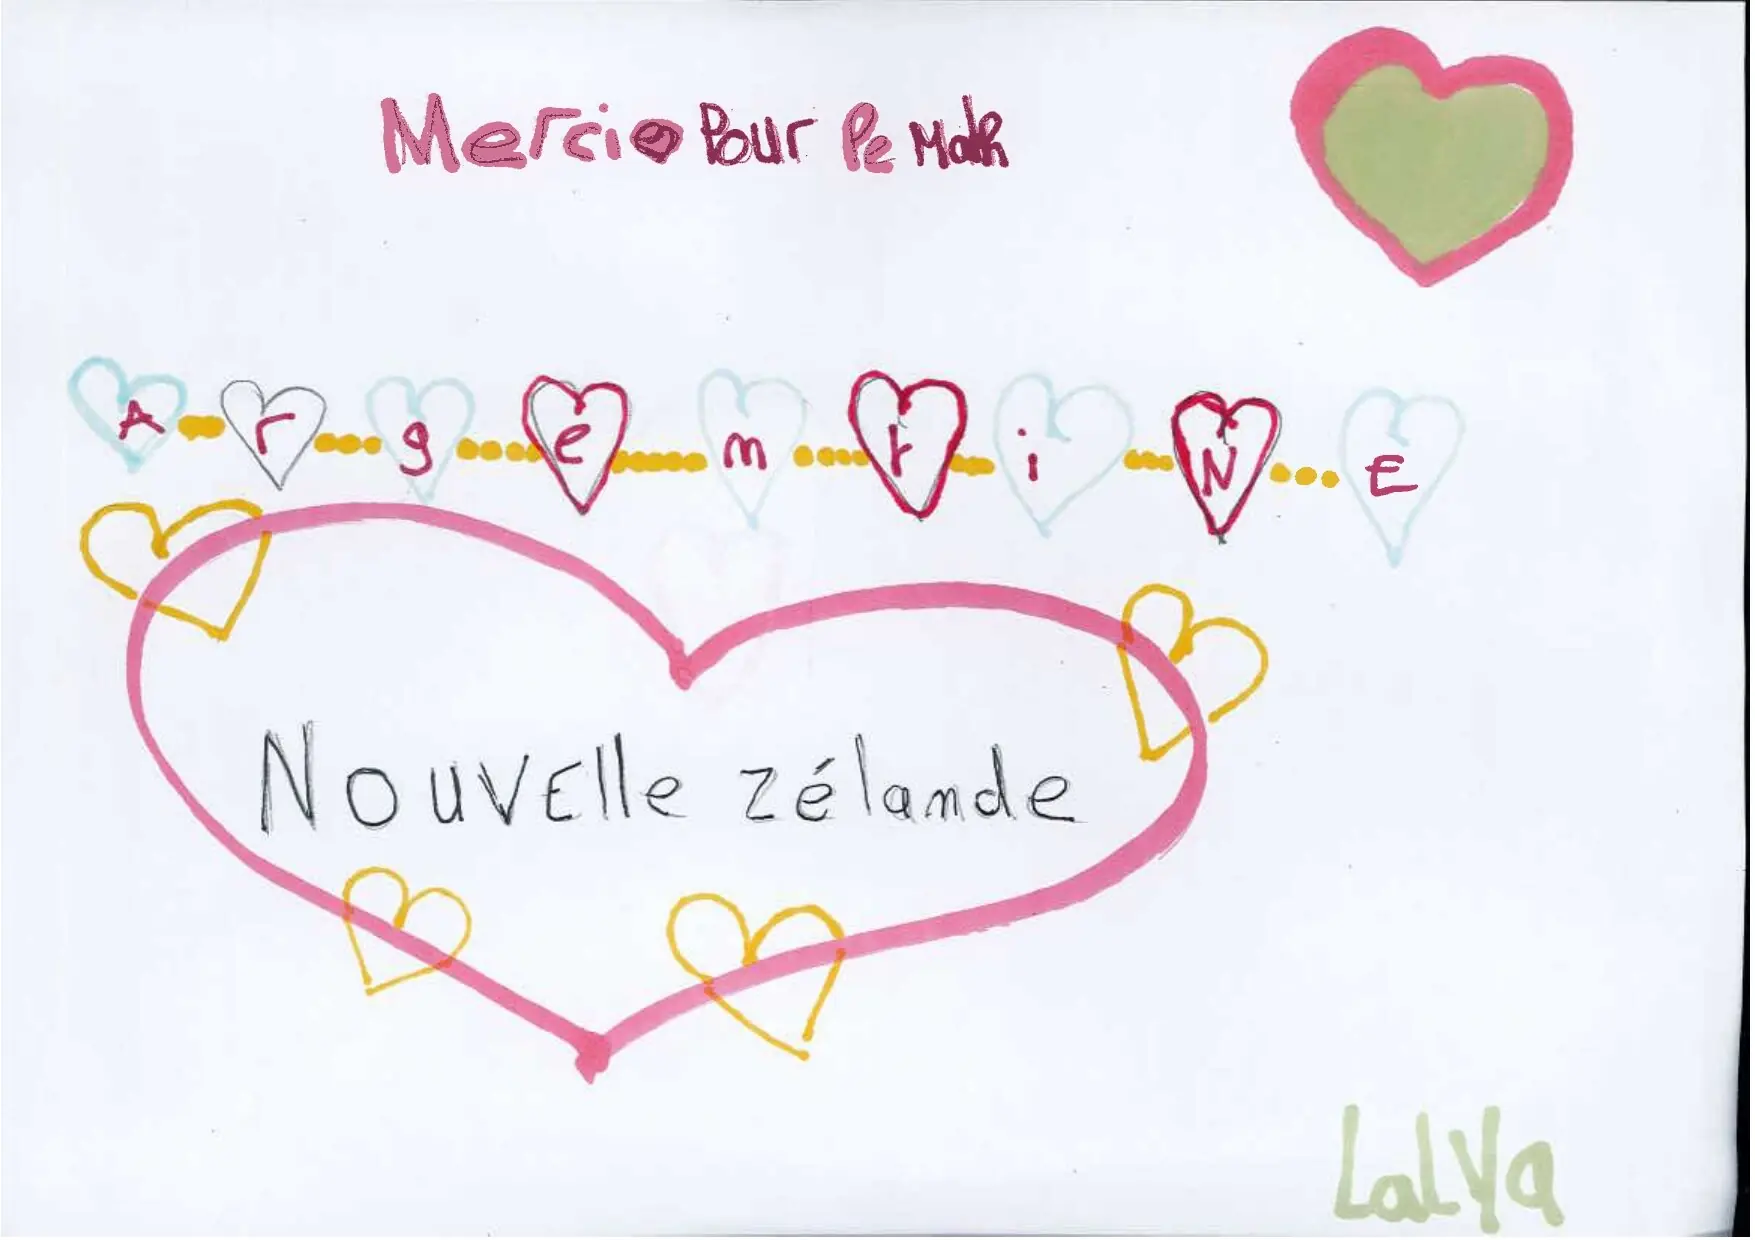 Merci Pour Pe Math
ArgentiNE
NouvElle zélande
LalYa